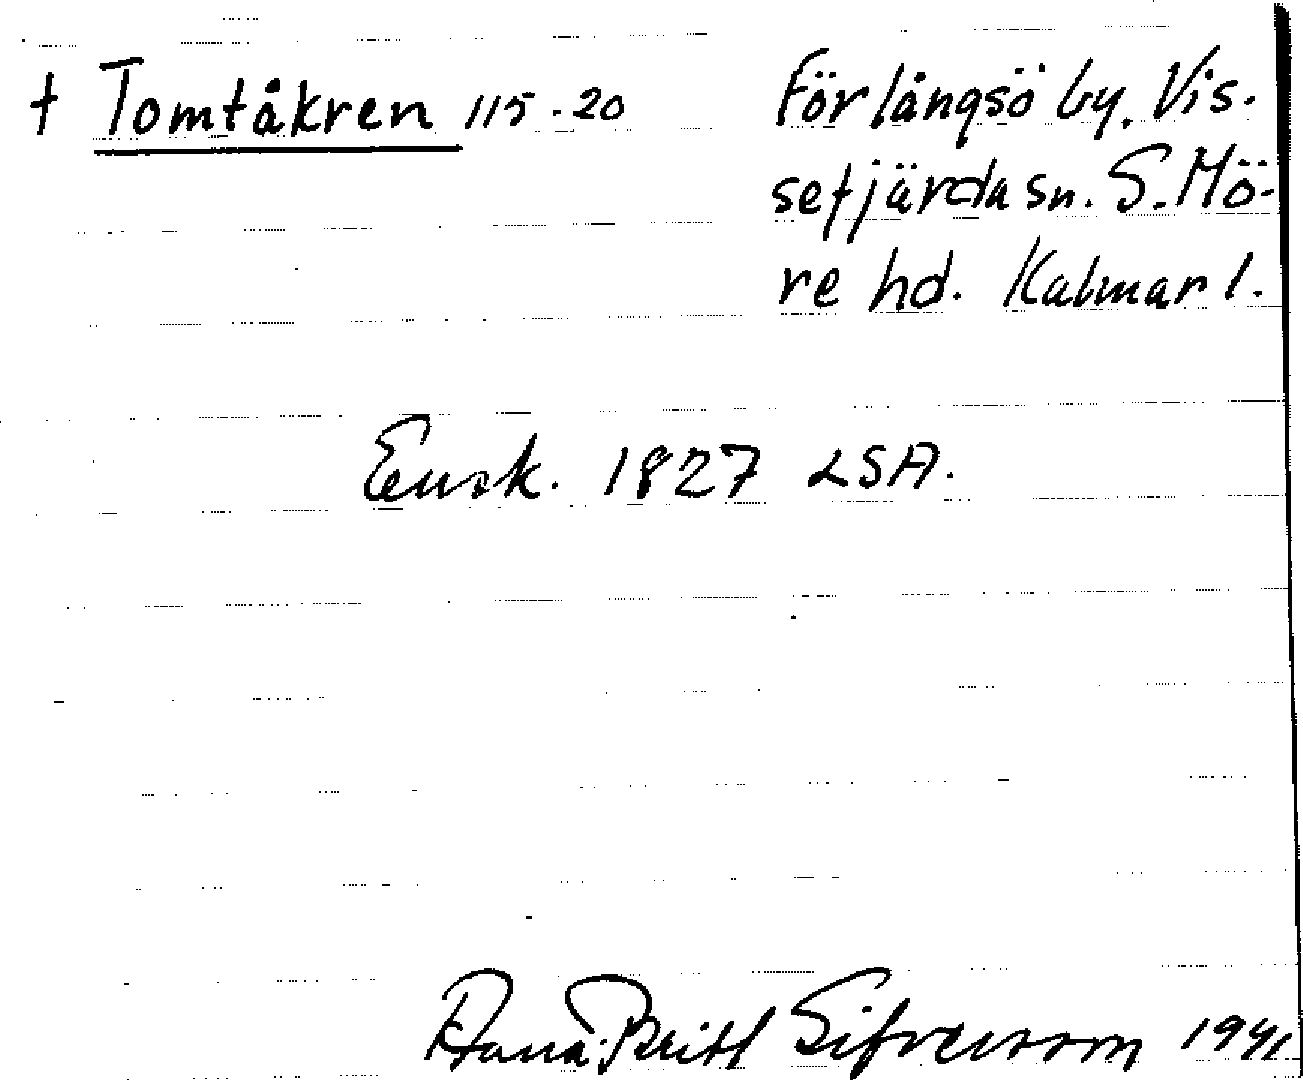 † Tomtåkren 115-20 Förlångsö by. Vis-
sefjärda sn. S. Mö-
re hd. Kalmar l.
Ensk. 1827 LSA.
Anna-Britt Sifversson 1941